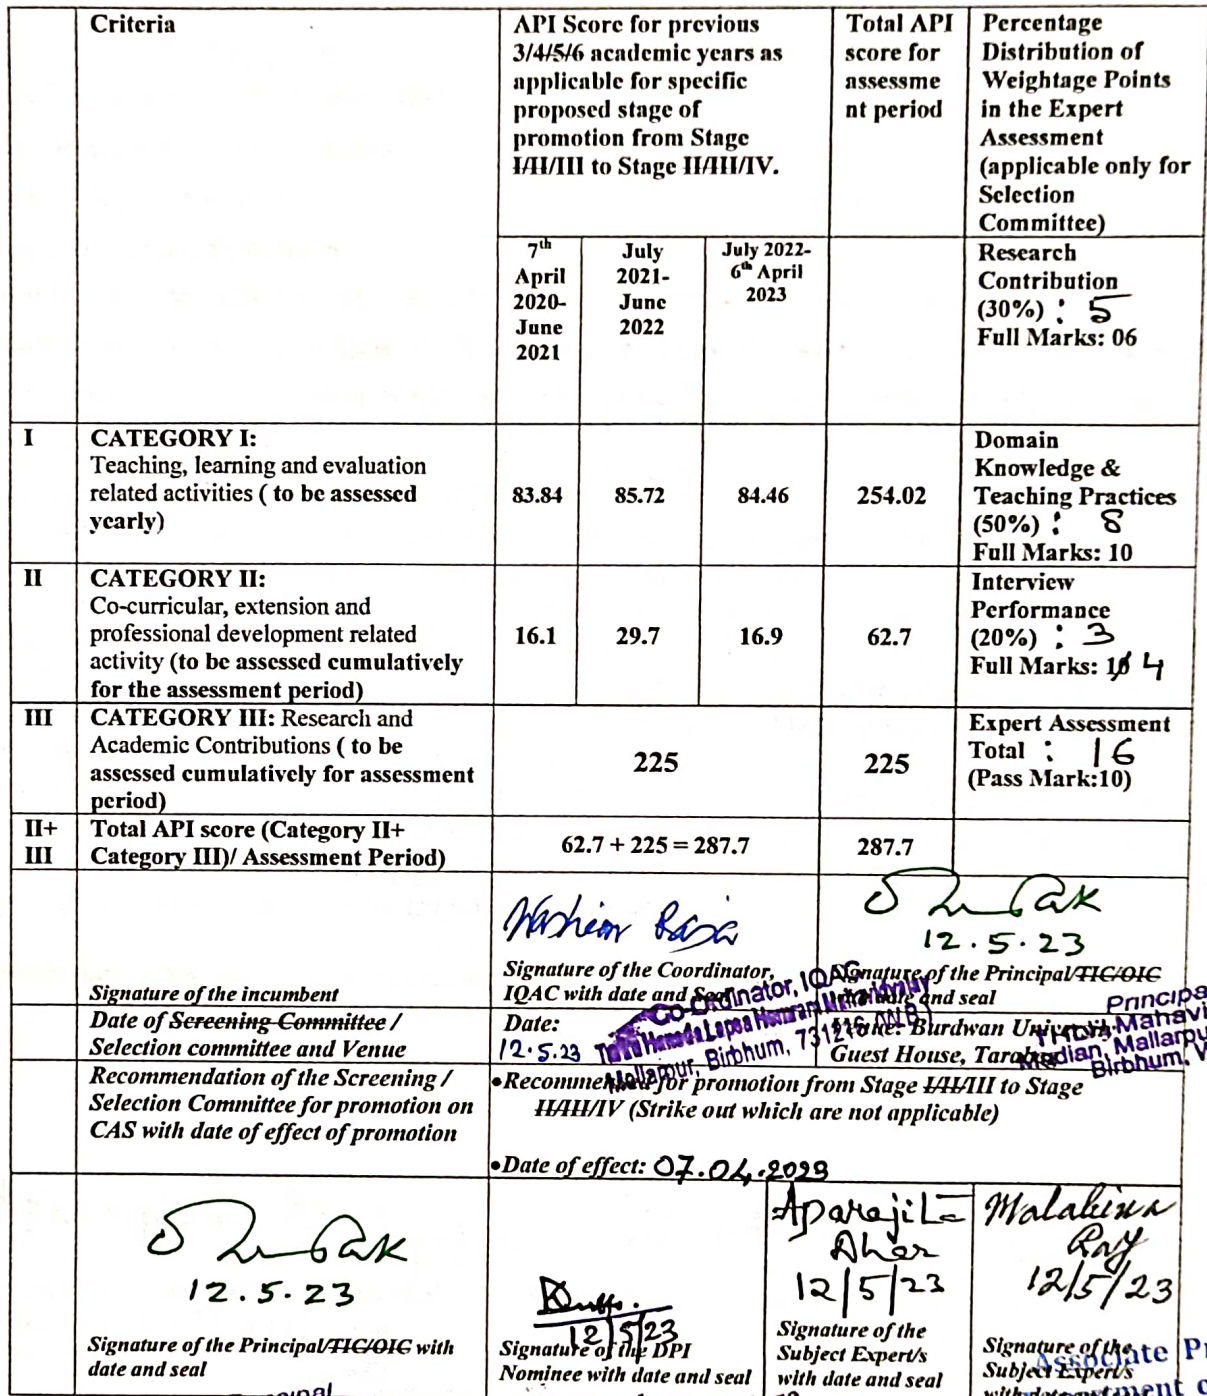 Criteria
API Score for previous
3/4/5/6 academic years as
applicable for specific
proposed stage of
promotion from Stage
I/II/III to Stage II/III/IV.
Total API
score for
assessme
nt period
Percentage
Distribution of
Weightage Points
in the Expert
Assessment
(applicable only for
Selection
Committee)
7th
April
2020-
June
2021
July
2021-
June
2022
July 2022-
6th April
2023
Research
Contribution
(30%) : 5
Full Marks: 06
I
CATEGORY I:
Teaching, learning and evaluation
related activities ( to be assessed
yearly)
83.84
85.72
84.46
254.02
Domain
Knowledge &
Teaching Practices
(50%) : 8
Full Marks: 10
II
CATEGORY II:
Co-curricular, extension and
professional development related
activity (to be assessed cumulatively
for the assessment period)
16.1
29.7
16.9
62.7
Interview
Performance
(20%) : 3
Full Marks: 4
III
CATEGORY III: Research and
Academic Contributions ( to be
assessed cumulatively for assessment
period)
225
225
Expert Assessment
Total : 16
(Pass Mark:10)
II+
III
Total API score (Category II+
Category III)/ Assessment Period)
62.7 + 225 = 287.7
287.7
Signature of the incumbent
Washim Raja
Signature of the Coordinator,
IQAC with date and Seal
Co-Ordinator, IQAC
Mallarpur, Birbhum, 731216
12.5.23
Signature of the Principal/TIC/OIC
with date and seal
Principal
Mallarpur
Birbhum, W
Date of Screening Committee /
Selection committee and Venue
Date:
12.5.23
Venue: Burdwan University
Guest House,
Recommendation of the Screening /
Selection Committee for promotion on
CAS with date of effect of promotion
•Recommended for promotion from Stage I/II/III to Stage
II/III/IV (Strike out which are not applicable)
•Date of effect: 07.04.2023
12.5.23
Signature of the Principal/TIC/OIC with
date and seal
12/5/23
Signature of the DPI
Nominee with date and seal
Aparajita
Dhar
12/5/23
Signature of the
Subject Expert/s
with date and seal
Ray
12/5/23
Signature of the
Subject Expert/s
Associate Pr